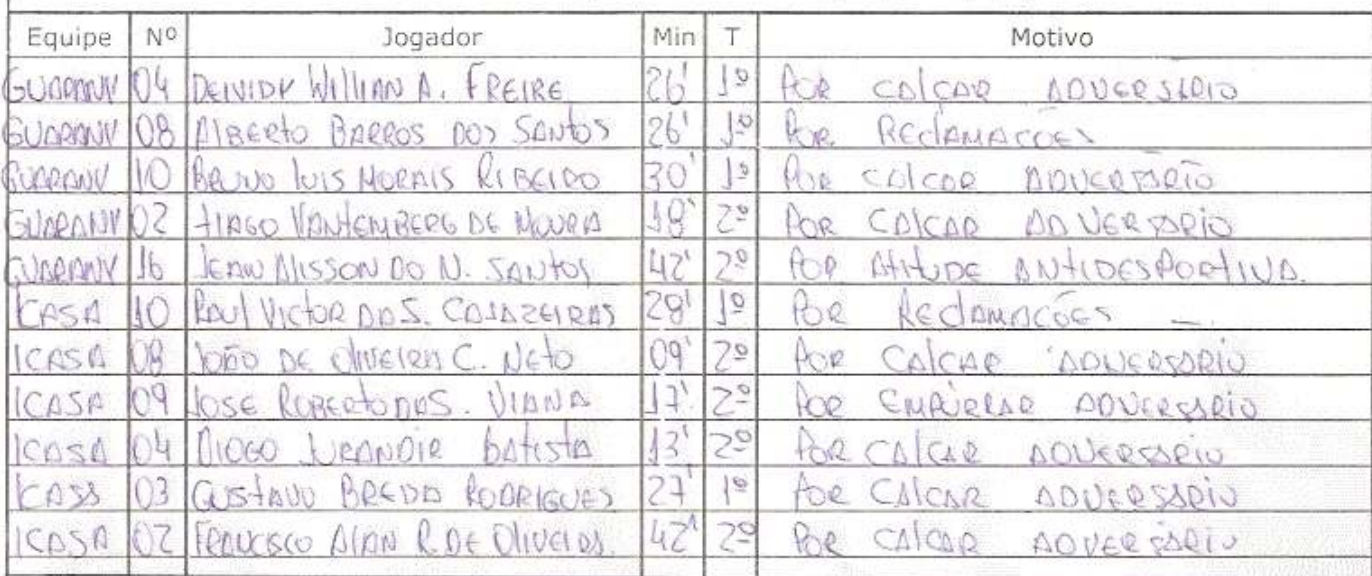 Equipe Nº Jogador Min T Motivo
GUARANY 04 DEIVIDY WILLIAN A. FREIRE 26' 1º POR CALÇAR ADVERSÁRIO
GUARANY 08 ALBERTO BARROS DOS SANTOS 26' 1º POR RECLAMAÇÕES
GUARANY 10 BRUNO LUIS MORAIS RIBEIRO 30' 1º POR CALÇAR ADVERSÁRIO
GUARANY 02 TIAGO VANTEMBERG DE MOURA 18' 2º POR CALÇAR ADVERSÁRIO
GUARANY 16 JEAN ALISSON DO N. SANTOS 42' 2º POR ATITUDE ANTIDESPORTIVA.
ICASA 10 RAUL VICTOR DA S. CAJAZEIRAS 28' 1º POR RECLAMAÇÕES
ICASA 08 JOÃO DE OLIVEIRA C. NETO 09' 2º POR CALÇAR ADVERSÁRIO
ICASA 09 JOSE ROBERTO DOS. VIANA 17' 2º POR EMPURRAR ADVERSÁRIO
ICASA 04 DIOGO JURANDIR BATISTA 13' 2º POR CALÇAR ADVERSÁRIO
ICASA 03 GUSTAVO BREDA RODRIGUES 27' 1º POR CALÇAR ADVERSÁRIO
ICASA 02 FRANCISCO ALAN R. DE OLIVEIRA. 42' 2º POR CALÇAR ADVERSÁRIO